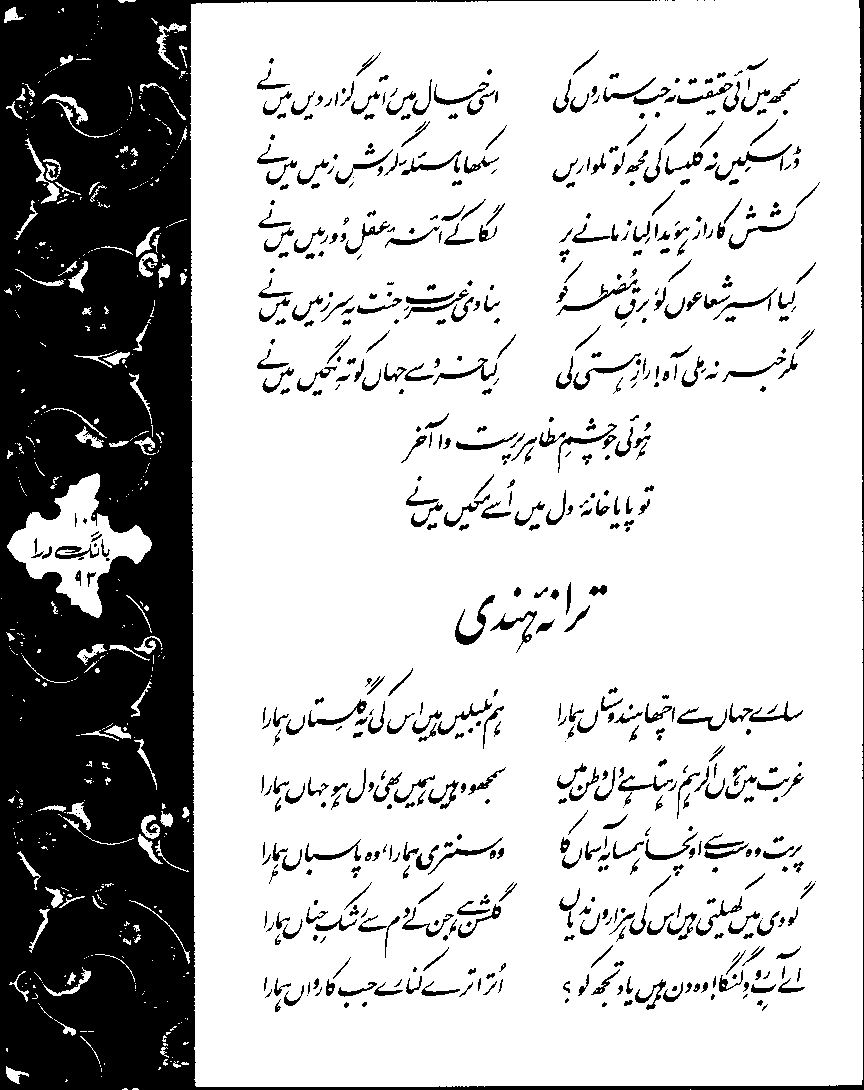 سمجھ میں آئی حقیقت نہ جب ستاروں کی اسی خیال میں راتیں گزار دیں میں نے
ڈرا سکیں نہ کلیسا کی مجھ کو تلواریں سکھایا مسئلہ گردشِ زمیں میں نے
کشش کا راز ہویدا کیا زمانے پر لگا کے آئنہ عقلِ دُور بیں میں نے
کِیا اسیر شعاعوں کو، برقِ مُضطر کو بنا دی غیرتِ جنّت یہ سرزمیں میں نے
مگر خبر نہ مِلی آہ! رازِ ہستی کی کِیا خرد سے جہاں کو تہِ نگیں میں نے
ہُوئی جو چشمِ مظاہر پرست وا آخر
تو پایا خانۂ دل میں اُسے مکیں میں نے
ترانۂ ہندی
سارے جہاں سے اچھّا ہندوستاں ہمارا ہم بُلبلیں ہیں اس کی، یہ گُلِستاں ہمارا
غربت میں ہوں اگر ہم، رہتا ہے دل وطن میں سمجھو وہیں ہمیں بھی، دل ہو جہاں ہمارا
پربت وہ سب سے اونچا، ہمسایہ آسماں کا وہ سنتری ہمارا، وہ پاسباں ہمارا
گودی میں کھیلتی ہیں اس کی ہزاروں ندیاں گلشن ہے جن کے دم سے رشکِ جِناں ہمارا
اے آبِ رودِ گنگا! وہ دن ہیں یاد تجھ کو؟ اُترا ترے کنارے جب کارواں ہمارا
۱۰۹
بانگِ درا
۹۳